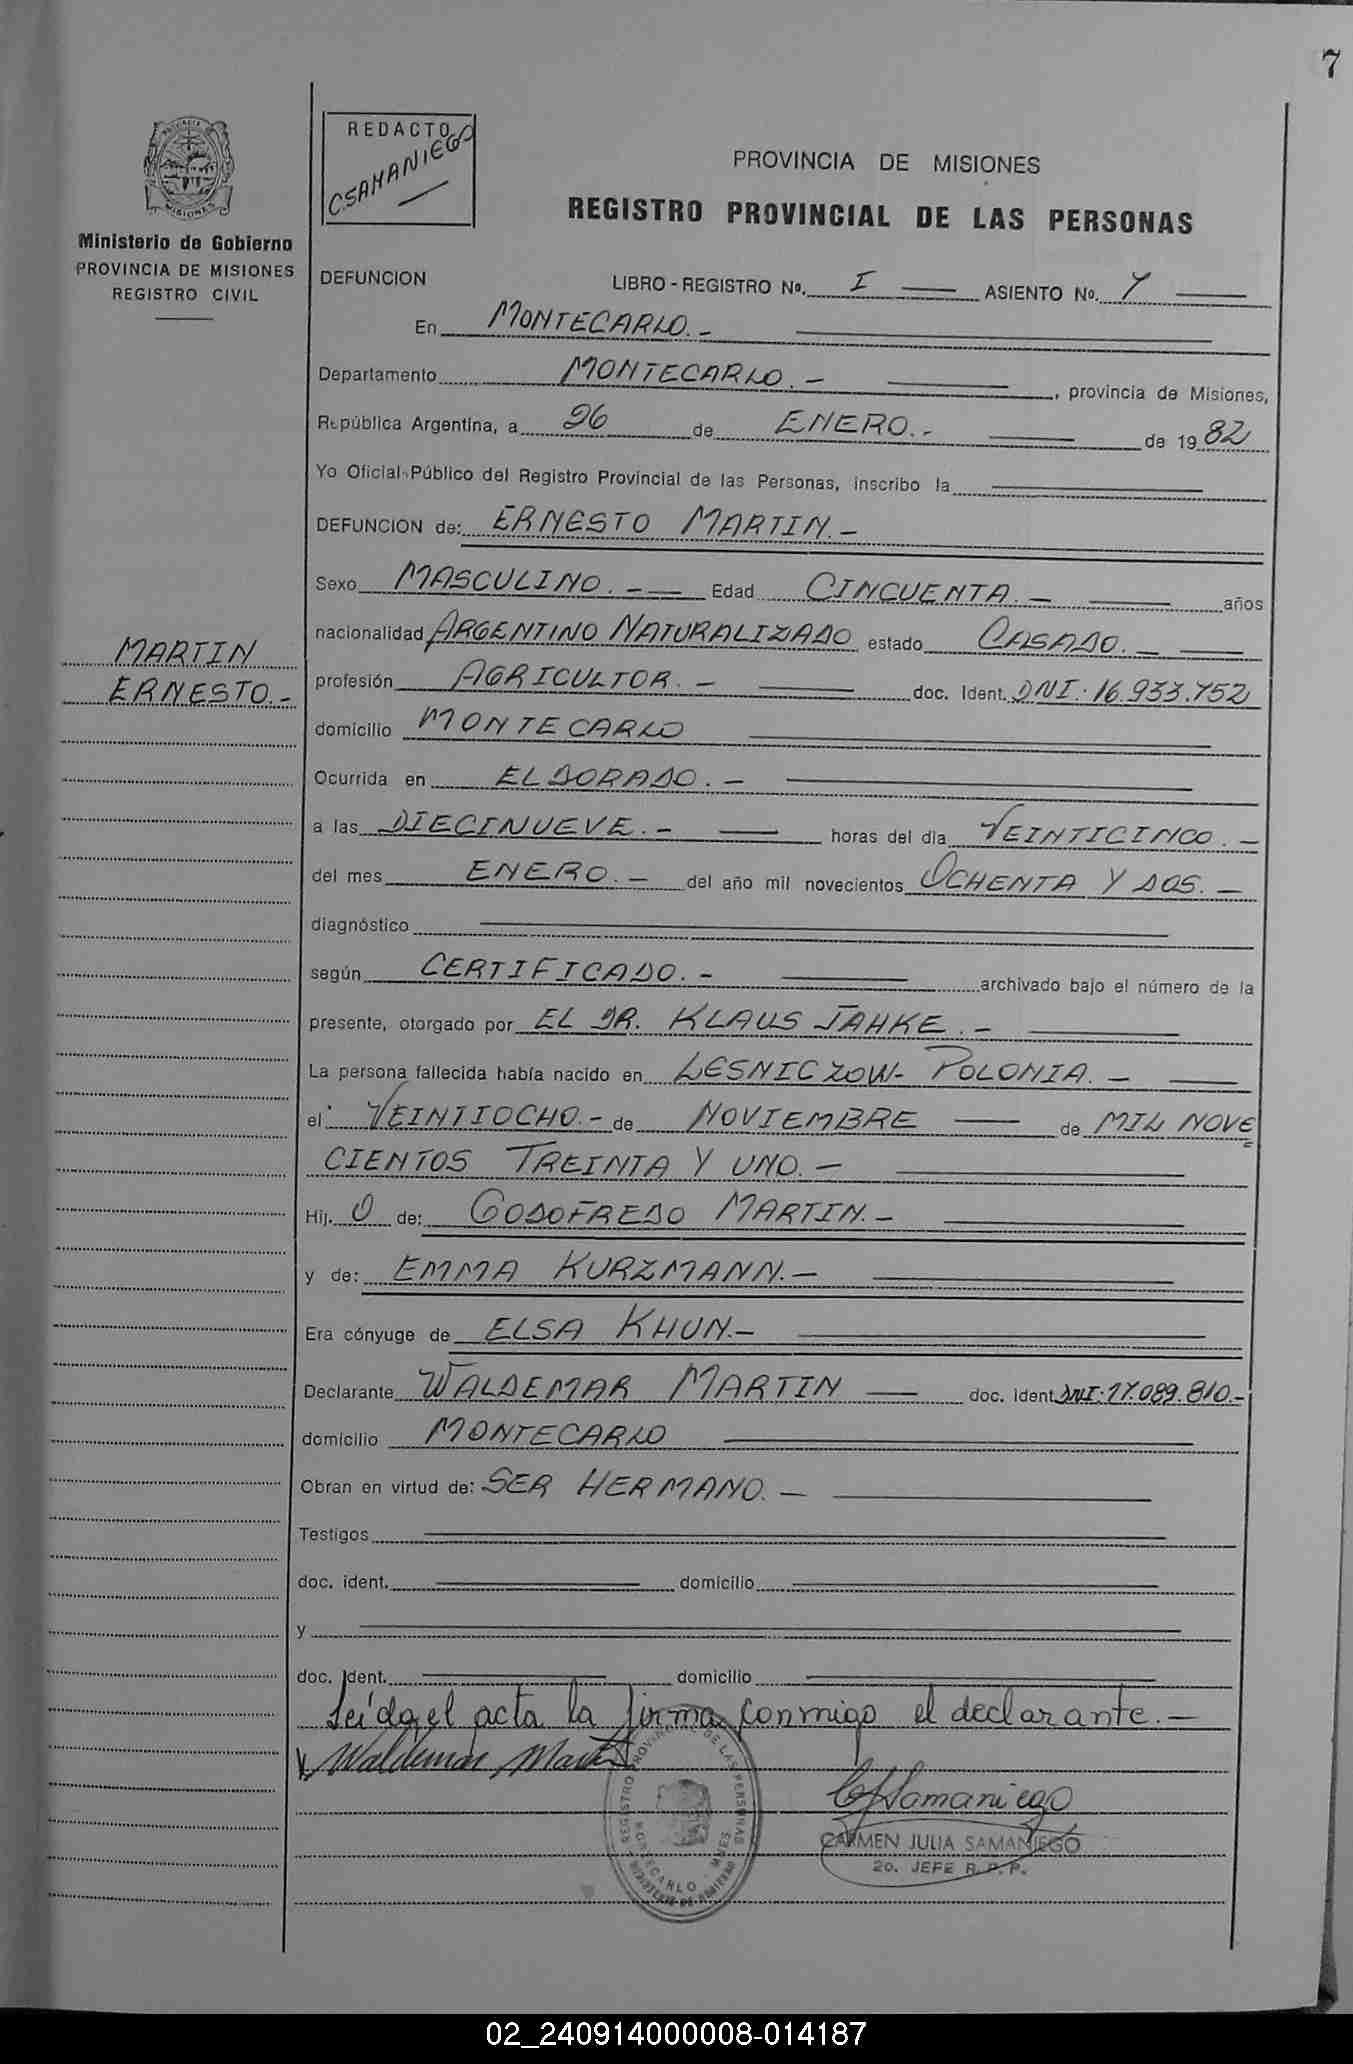 7
REDACTO
C.SAMANIEGO
PROVINCIA DE MISIONES
REGISTRO PROVINCIAL DE LAS PERSONAS
MISIONES
Ministerio de Gobierno
PROVINCIA DE MISIONES
REGISTRO CIVIL
DEFUNCION LIBRO - REGISTRO No. I ASIENTO No. 7
En MONTECARLO.-
Departamento MONTECARLO.- , provincia de Misiones,
República Argentina, a 26 de ENERO.- de 19 82
Yo Oficial Público del Registro Provincial de las Personas, inscribo la
DEFUNCION de: ERNESTO MARTIN.-
Sexo MASCULINO.- Edad CINCUENTA.- años
nacionalidad ARGENTINO NATURALIZADO estado CASADO.-
MARTIN
ERNESTO.-
profesión AGRICULTOR.- doc. Ident. DNI. 16.933.752
domicilio MONTECARLO
Ocurrida en ELDORADO.-
a las DIECINUEVE.- horas del día VEINTICINCO.-
del mes ENERO.- del año mil novecientos OCHENTA Y DOS.-
diagnóstico
según CERTIFICADO.- archivado bajo el número de la
presente, otorgado por EL DR. KLAUS JAHKE.-
La persona fallecida había nacido en LESNICZOW- POLONIA.-
el VEINTIOCHO.- de NOVIEMBRE de MIL NOVE=
CIENTOS TREINTA Y UNO.-
Hij. O de: GODOFREDO MARTIN.-
y de: EMMA KURZMANN.-
Era cónyuge de ELSA KHUN.-
Declarante WALDEMAR MARTIN doc. ident DNI. 17.089.810.-
domicilio MONTECARLO
Obran en virtud de: SER HERMANO.-
Testigos
doc. ident. domicilio
y
doc. Ident. domicilio
Leída el acta la firma conmigo el declarante.-
Waldemar Martin
CJSamaniego
REGISTRO PROVINCIAL DE LAS PERSONAS
MONTECARLO - MNES.
MINISTERIO DE GOBIERNO
CARMEN JULIA SAMANIEGO
2o. JEFE R.P.P.
02_240914000008-014187